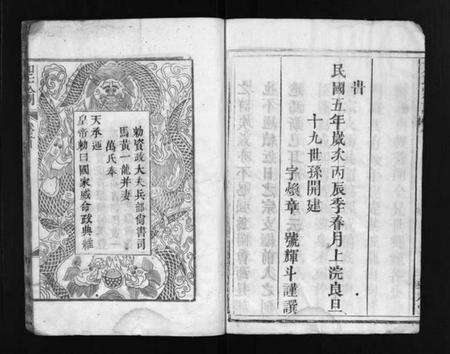 書
民國五年歲次丙辰季春月上浣良旦
十九世孫開建
字燦章
號輝斗謹譔
勅資政大夫兵部尙書司
馬黃一龍并妻
萬氏奉
天承運
皇帝勅曰國家威命政典雖